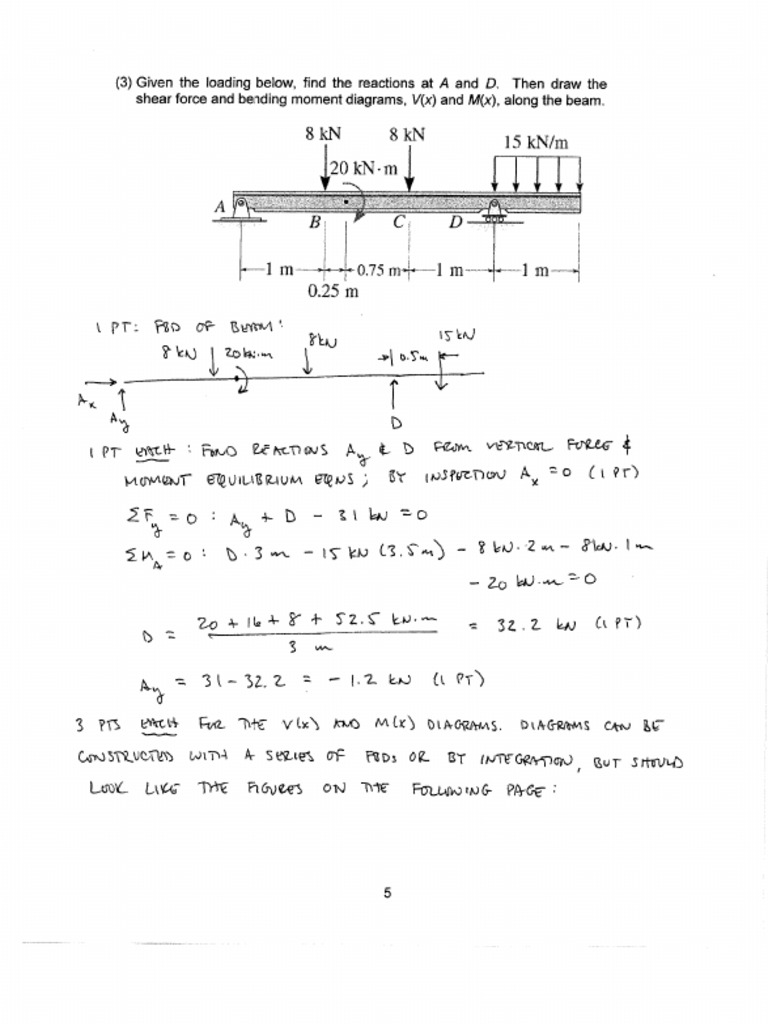 (3) Given the loading below, find the reactions at A and D. Then draw the
shear force and bending moment diagrams, V(x) and M(x), along the beam.
8 kN 8 kN 15 kN/m
20 kN·m
A B C D
1 m 0.75 m 1 m 1 m
0.25 m
1 PT: FBD OF BEAM:
8 kN 20 kN·m 8kN 0.5m 15 kN
Ax
Ay D
1 PT EACH: FIND REACTIONS Ay & D FROM VERTICAL FORCE &
MOMENT EQUILIBRIUM EQNS; BY INSPECTION Ax = 0 (1 PT)
ΣFy = 0 : Ay + D - 31 kN = 0
ΣMA = 0 : D · 3 m - 15 kN (3.5m) - 8 kN · 2 m - 8kN · 1m
- 20 kN·m = 0
D = 20 + 16 + 8 + 52.5 kN·m / 3 m = 32.2 kN (1 PT)
Ay = 31 - 32.2 = - 1.2 kN (1 PT)
3 PTS EACH FOR THE V(x) AND M(x) DIAGRAMS. DIAGRAMS CAN BE
CONSTRUCTED WITH A SERIES OF FBDs OR BY INTEGRATION, BUT SHOULD
LOOK LIKE THE FIGURES ON THE FOLLOWING PAGE:
5